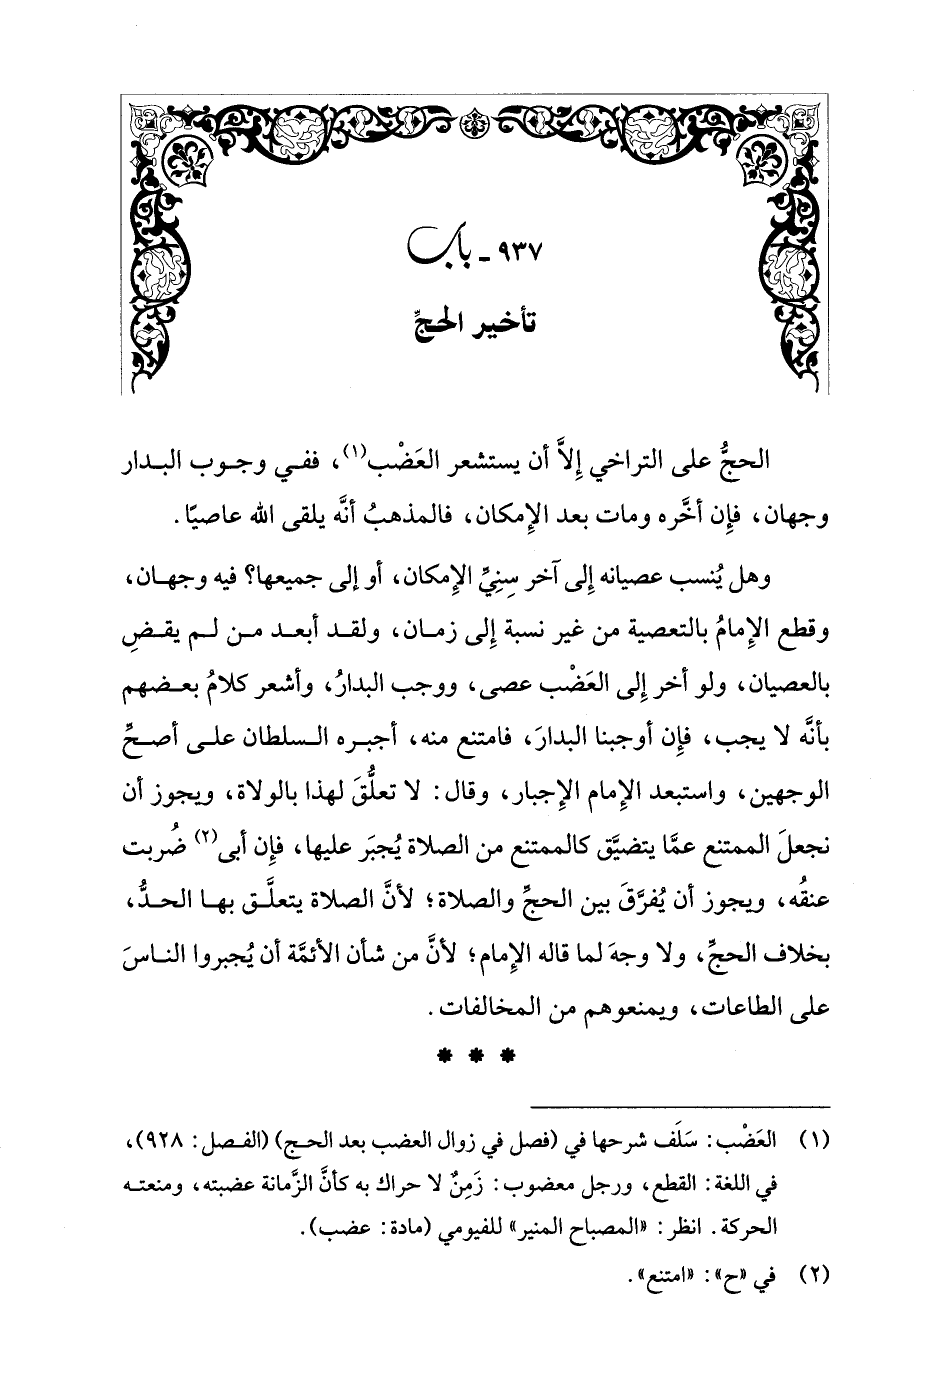 ٩٣٧ - باب
تأخير الحجِّ
الحجُّ على التراخي إِلاَّ أن يستشعر العَضْب(١)، ففي وجوب البدار
وجهان، فإِن أخَّره ومات بعد الإمكان، فالمذهبُ أنَّه يلقى الله عاصيًا.
وهل يُنسب عصيانه إِلى آخر سِنِيِّ الإمكان، أو إِلى جميعها؟ فيه وجهان،
وقطع الإمامُ بالتعصية من غير نسبة إِلى زمان، ولقد أبعد من لم يقضِ
بالعصيان، ولو أخر إِلى العَضْب عصى، ووجب البدارُ، وأشعر كلامُ بعضهم
بأنَّه لا يجب، فإِن أوجبنا البدارَ، فامتنع منه، أجبره السلطان على أصحِّ
الوجهين، واستبعد الإمام الإجبار، وقال: لا تعلُّقَ لهذا بالولاة، ويجوز أن
نجعلَ الممتنع عمَّا يتضيَّق كالممتنع من الصلاة يُجبَر عليها، فإِن أبى(٢) ضُربت
عنقُه، ويجوز أن يُفرَّقَ بين الحجِّ والصلاة؛ لأنَّ الصلاة يتعلَّق بها الحدُّ،
بخلاف الحجِّ، ولا وجهَ لما قاله الإمام؛ لأنَّ من شأن الأئمَّة أن يُجبروا الناسَ
على الطاعات، ويمنعوهم من المخالفات.
* * *
(١) العَضْب: سَلَف شرحها في (فصل في زوال العضب بعد الحج) (الفصل: ٩٢٨)،
في اللغة: القطع، ورجل معضوب: زَمِنٌ لا حراك به كأنَّ الزَّمانة عضبته، ومنعته
الحركة. انظر: «المصباح المنير» للفيومي (مادة: عضب).
(٢) في «ح»: «امتنع».